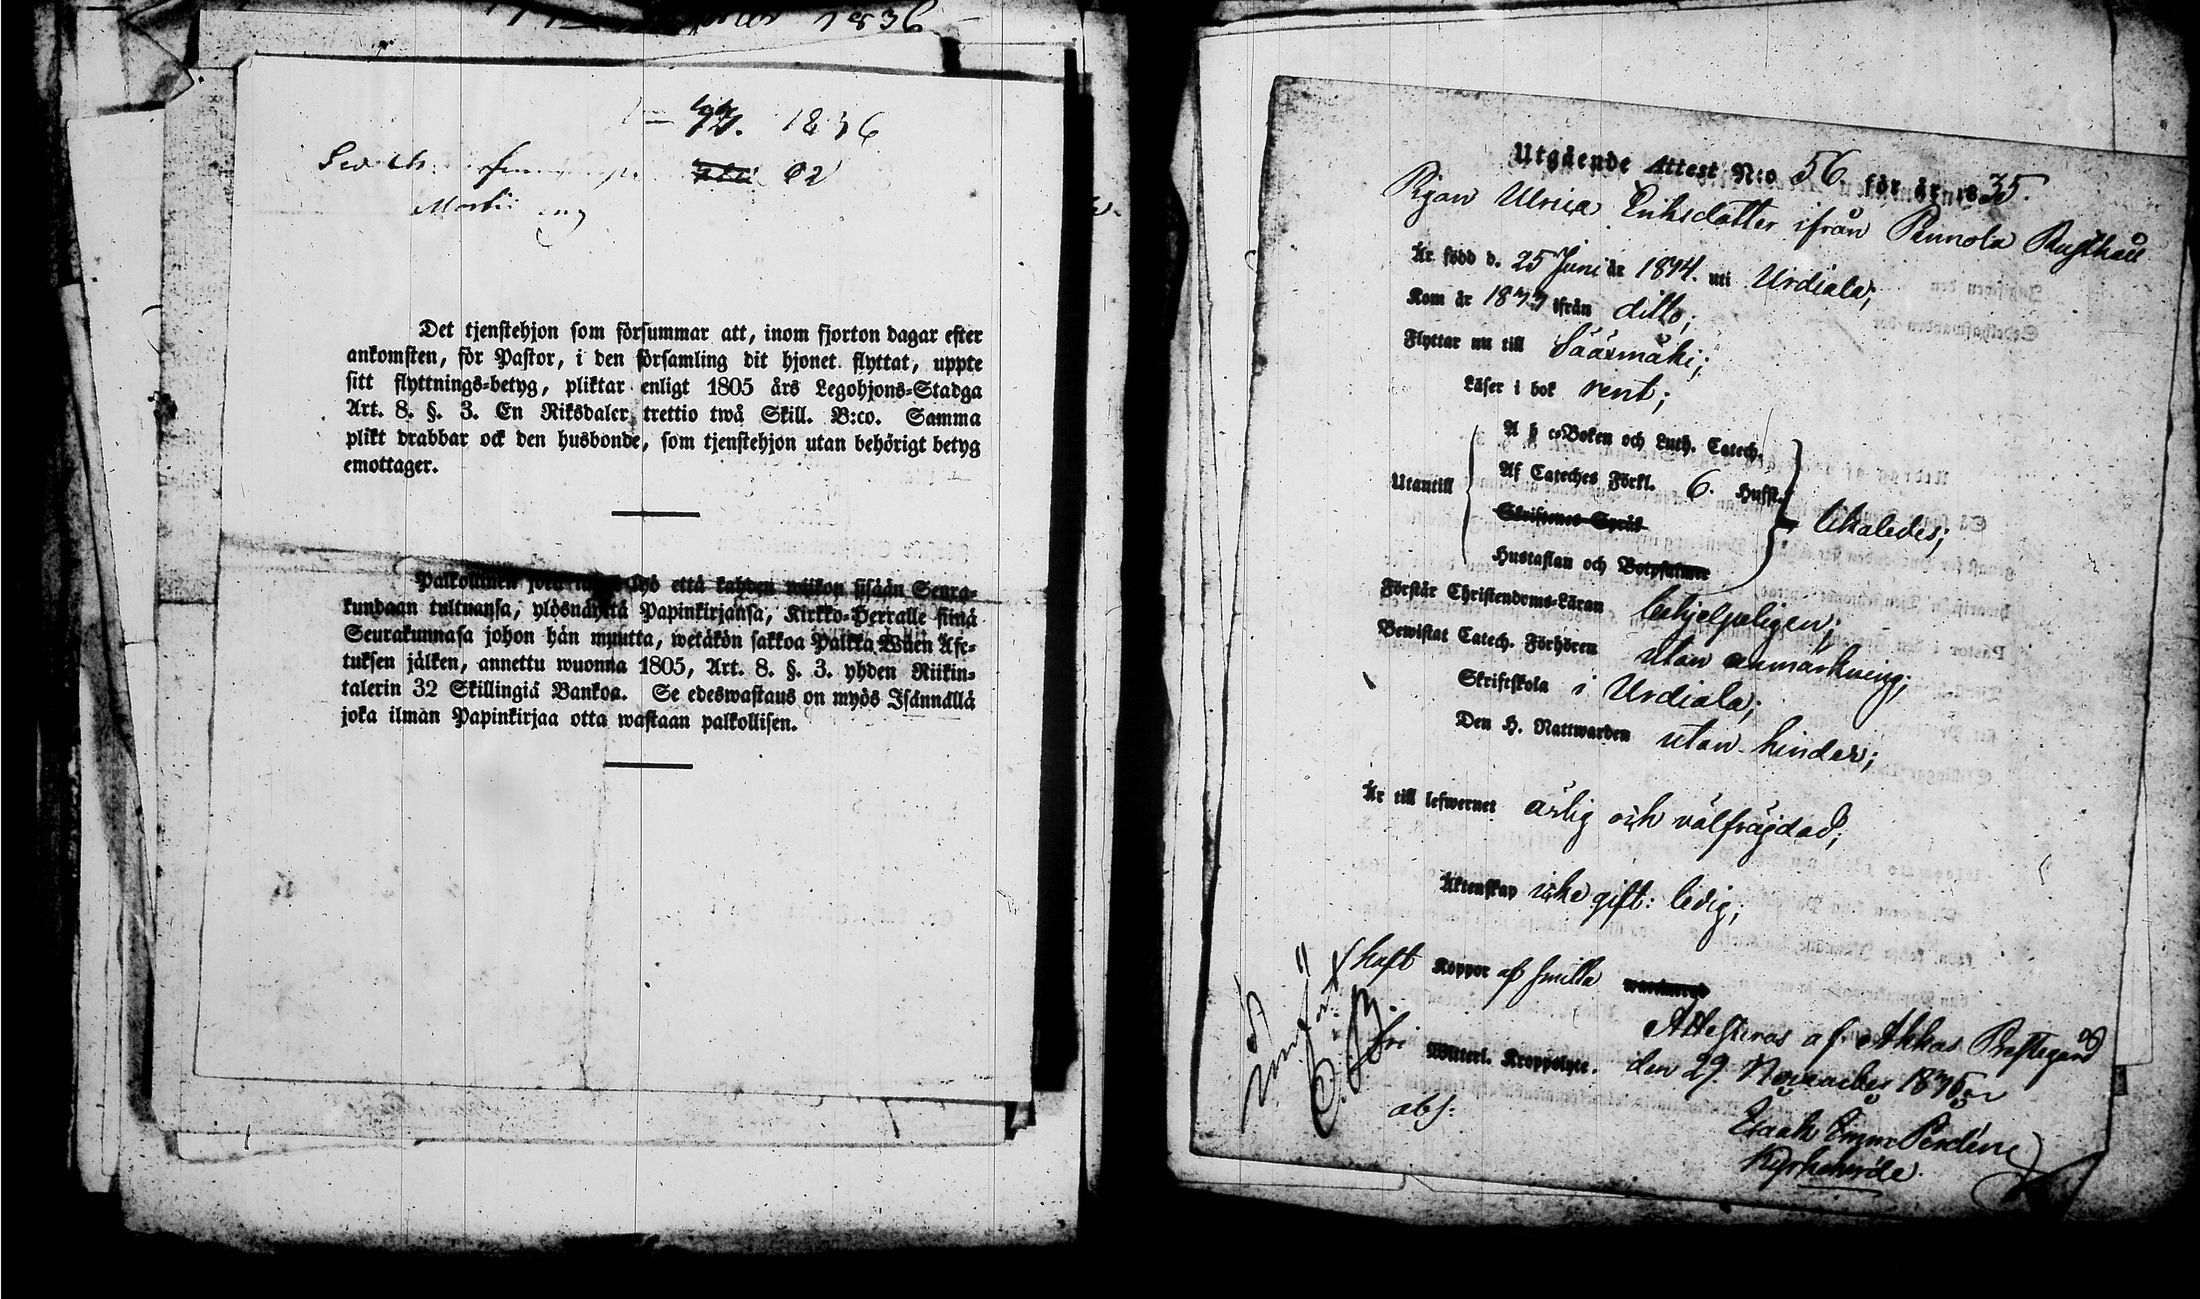 1836
1836
Det tjenstehjon som försummar att, inom fjorton dagar efter
ankomsten, för Pastor, i den församling dit hjonet flyttat, uppte
sitt flyttnings-betyg, pliktar enligt 1805 års Legohjons-Stadga
Art. 8. §. 3. En Riksdaler trettio twå Skill. B:co. Samma
plikt drabbar ock den husbonde, som tjenstehjon utan behörigt betyg
emottager.
että kahden wiikon sisään Seura-
kundaan tultuansa, ylösnäyttä Papinkirjansa, Kirkko-Herralle siinä
Seurakunnasa johon hän muutta, wetäkön sakkoa Palkka Wäen Ase-
tuksen jälken, annettu wuonna 1805, Art. 8. §. 3. yhden Riikin-
talerin 32 Skillingiä Bankoa. Se edeswastaus on myös Isännällä
joka ilman Papinkirjaa otta wastaan palkollisen.
Utgående Attest N:o 56 för år 1835.
Pigan Ulrica Eriksdotter ifrån Pennola Rusthåll
Är född d. 25 Juni år 1814. uti Urdiala;
Kom år 1833 ifrån ditto;
Flyttar nu till Sääxmäki;
Läser i bok rent;
A b c-Boken och Luth. Catech.
Utantill Af Cateches Förkl. 6. Hufst. likaledes;
Skriftenes Språk
Hustaflan och Botpsalmer
Förstår Christendoms-Läran behjelpeligen;
Bewistat Catech. Förhören utan anmärkning;
Skriftskola i Urdiala;
Den H. Nattwarden utan hinder;
Är till lefwernet ärlig och välfrägdad;
Äktenskap icke gift: ledig;
haft Koppor af Smitta
Attesteras af Akkas Prestegård
fri Witterl. Kroppslyte. den 29. November 1835.
abs:
Isaak Emm. Perdén
Kyrkoherde.